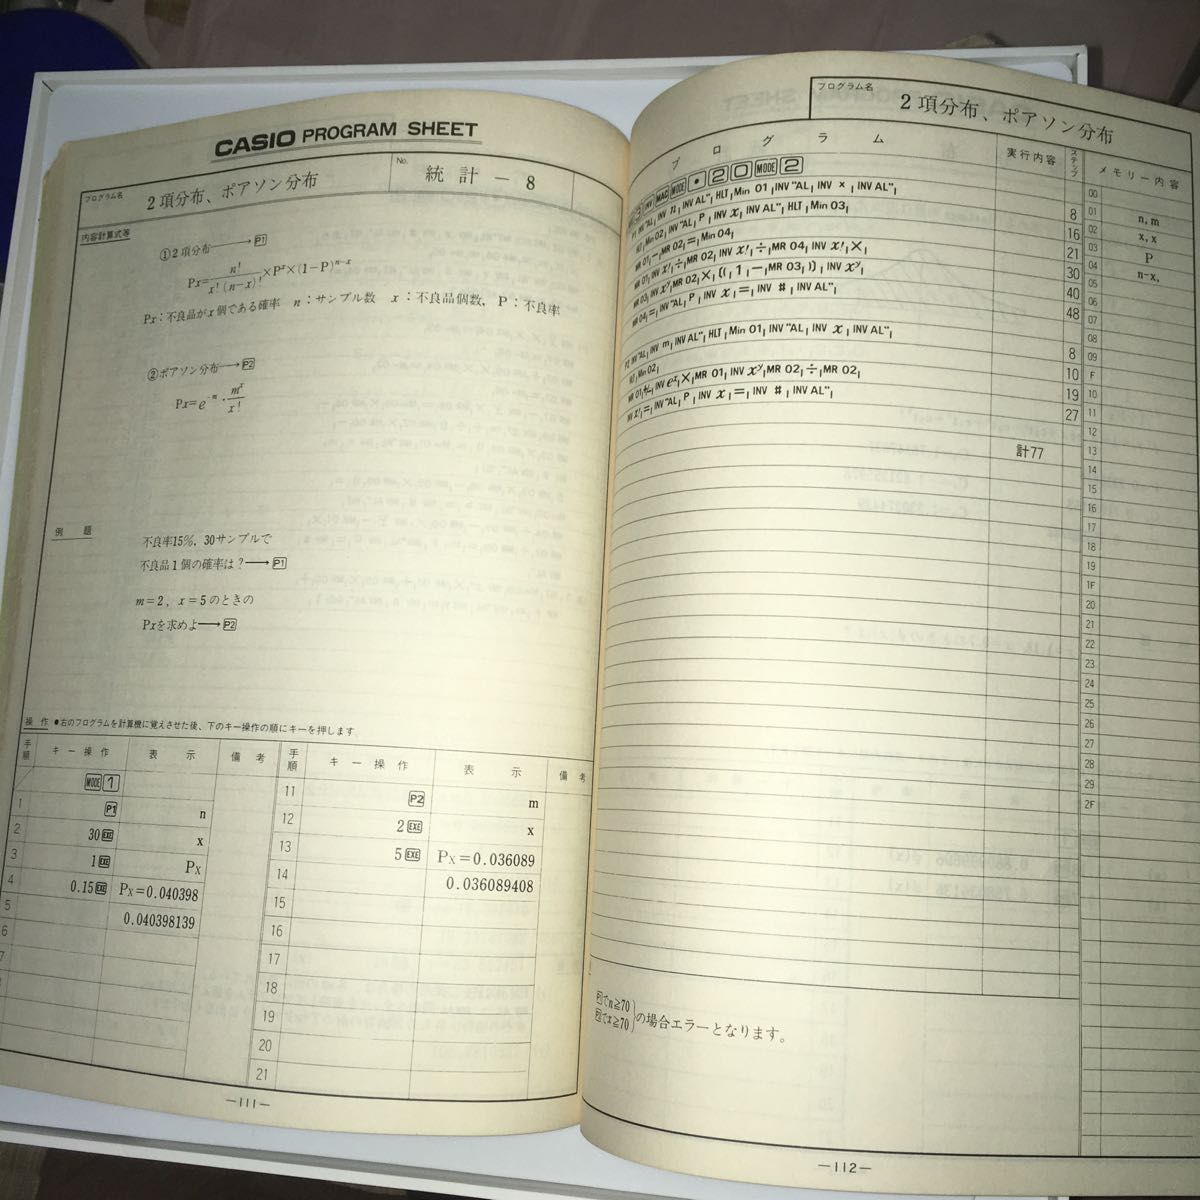 CASIO PROGRAM SHEET
プログラム名
2項分布、ポアソン分布
No.
統計-8
内容計算式等
①2項分布→P1
Px=n!/x!(n-x)!×P^x×(1-P)^n-x
Px:不良品がx個である確率 n:サンプル数 x:不良品個数, P:不良率
②ポアソン分布→P2
Px=e^-m・m^x/x!
例 題
不良率15%, 30サンプルで
不良品1個の確率は?→P1
m=2, x=5のときの
Pxを求めよ→P2
操 作 ●右のプログラムを計算機に覚えさせた後、下のキー操作の順にキーを押します
手順 キー操作 表 示 備 考
MODE 1
1 P1 n
2 30 EXE x
3 1 EXE Px
4 0.15 EXE Px=0.040398
5 0.040398139
6
7
手順 キー操作 表 示 備 考
11 P2 m
12 2 EXE x
13 5 EXE Px=0.036089
14 0.036089408
15
16
17
18
19
20
21
—111—
プログラム名
2項分布、ポアソン分布
プログラム 実行内容 ステップ メモリー内容
INV MAC MODE • 2 0 MODE 2
P1 INV"AL, INV n, INV AL", HLT, Min 01, INV"AL, INV x, INV AL", 8
HLT, Min 02, INV"AL, P, INV x, INV AL", HLT, Min 03, 16
MR 01, -, MR 02, =, Min 04, 21
MR 01, INV x!, ÷, MR 02, INV x!, ÷, MR 04, INV x!, ×, 30
MR 03, INV x^y, MR 02, ×, [(, 1, -, MR 03, )], INV x^y, 40
MR 04, =, INV"AL, P, INV x, =, INV #, INV AL", 48
P2 INV"AL, INV m, INV AL", HLT, Min 01, INV"AL, INV x, INV AL", 8
HLT, Min 02, 10
MR 01, +/-, INV e^x, ×, MR 01, INV x^y, MR 02, ÷, MR 02, 19
INV x!, =, INV"AL, P, INV x, =, INV #, INV AL", 27
計77
00
01 n, m
02 x, x
03 P
04 n-x,
05
06
07
08
09
F
10
11
12
13
14
15
16
17
18
19
1F
20
21
22
23
24
25
26
27
28
29
2F
でn≧70
でx≧70
の場合エラーとなります。
—112—